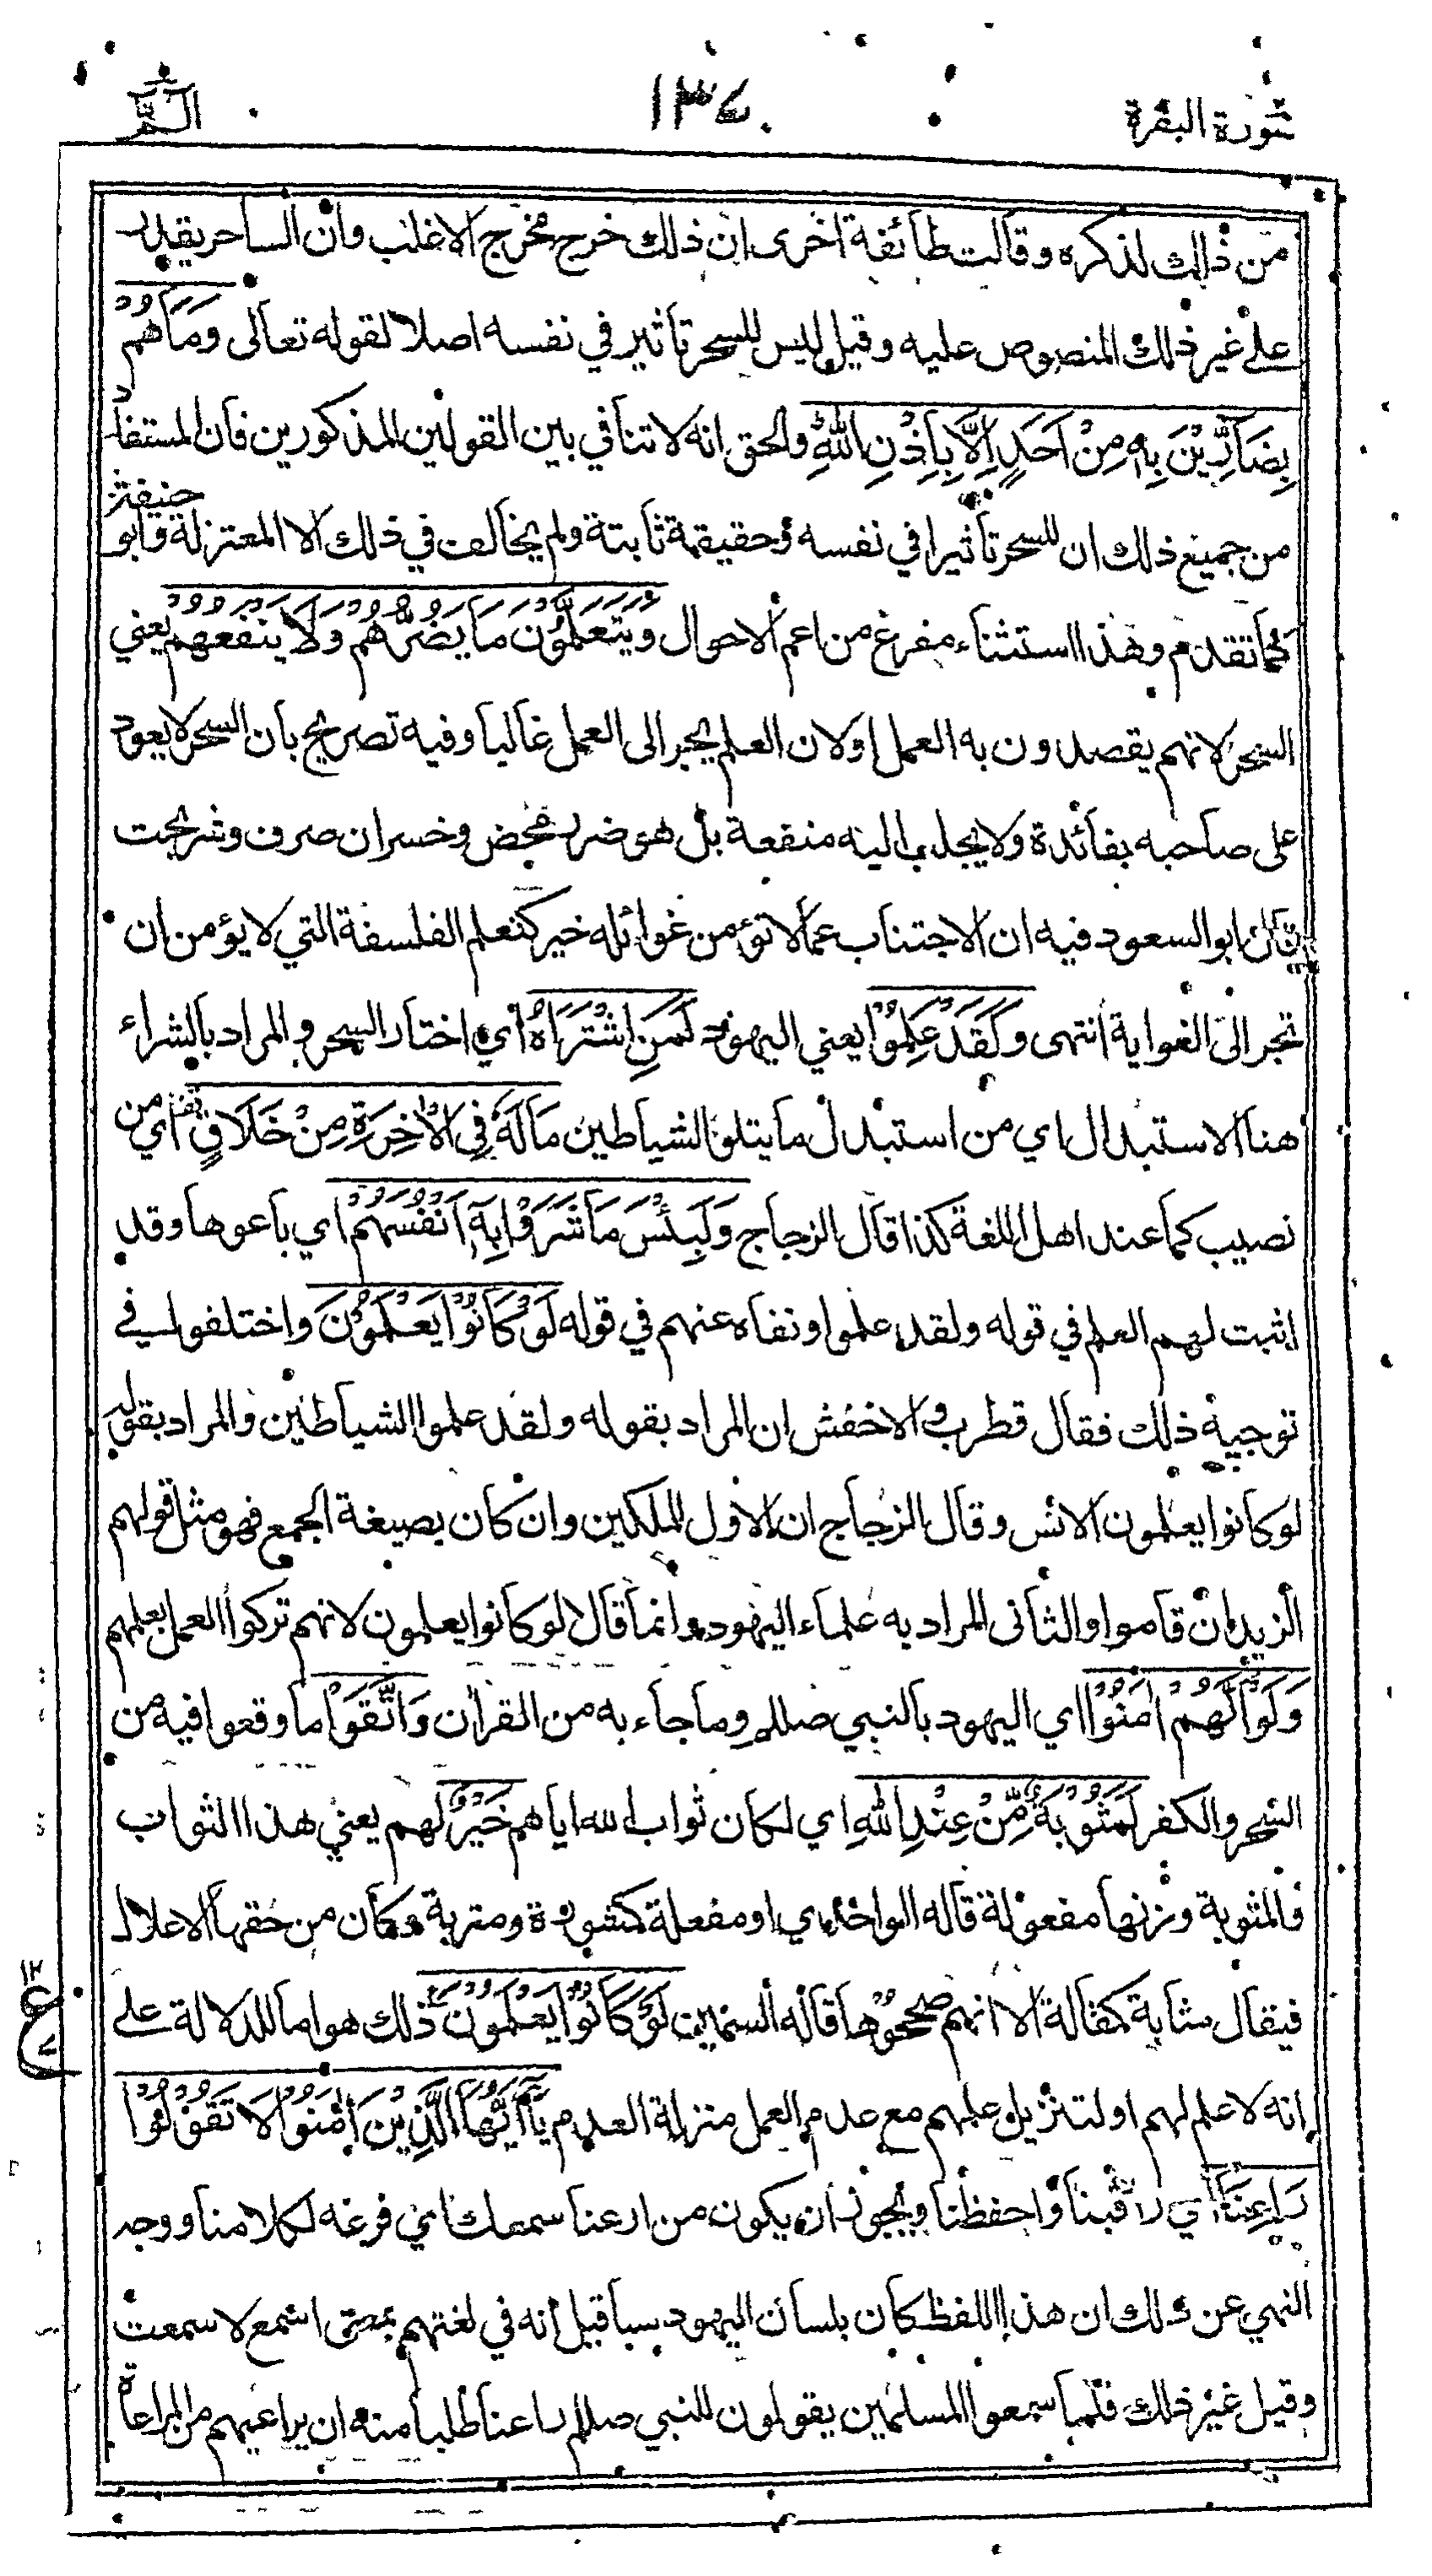 سورة البقرة ١٣٤ الۤمّۤ
من ذلك لذكره وقالت طائفة اخرى ان ذلك خرج مخرج الاغلب وان الساحر يقدر
على غير ذلك المنصوص عليه وقيل ليس للسحر تأثير في نفسه اصلا لقوله تعالى وَمَا هُمْ
بِضَارِّيْنَ بِهٖ مِنْ اَحَدٍ اِلَّا بِاِذْنِ اللّٰهِ والحق انه لا تنافي بين القولين المذكورين فان المستفاد
من جميع ذلك ان للسحر تأثيرا في نفسه وحقيقة ثابتة ولم يخالف في ذلك الا المعتزلة وابو حنيفة
كما تقدم وهذا استثناء مفرغ من اعم الاحوال وَيَتَعَلَّمُوْنَ مَا يَضُرُّهُمْ وَلَا يَنْفَعُهُمْ يعني
السحر لانهم يقصدون به العمل او لان العلم يجر الى العمل غالبا وفيه تصريح بان السحر لا يعود
على صاحبه بفائدة ولا يجلب اليه منفعة بل هو ضرر محض وخسران صرف وشر بحت
قال ابو السعود فيه ان الاجتناب عما لا تؤمن غوائله خير كتعلم الفلسفة التي لا يؤمن ان
تجر الى الغواية انتهى وَلَقَدْ عَلِمُوْا يعني اليهود لَمَنِ اشْتَرَاهُ اي اختار السحر والمراد بالشراء
هنا الاستبدال اي من استبدل ما يتلو الشياطين مَا لَهٗ فِي الْاٰخِرَةِ مِنْ خَلَاقٍ اي من
نصيب كما عند اهل اللغة كذا قال الزجاج وَلَبِئْسَ مَا شَرَوْا بِهٖٓ اَنْفُسَهُمْ اي باعوها وقد
اثبت لهم العلم في قوله ولقد علموا ونفاه عنهم في قوله لَوْ كَانُوْا يَعْلَمُوْنَ واختلفوا في
توجيه ذلك فقال قطرب والاخفش ان المراد بقوله ولقد علموا الشياطين والمراد بقوله
لو كانوا يعلمون الانس وقال الزجاج ان الاول للملكين وان كان بصيغة الجمع فهو مثل قولهم
الزيدان قاموا والثاني المراد به علماء اليهود وانما قال لو كانوا يعلمون لانهم تركوا العمل بعلمهم
وَلَوْ اَنَّهُمْ اٰمَنُوْا اي اليهود بالنبي صللم وما جاء به من القران وَاتَّقَوْا ما وقعوا فيه من
السحر والكفر لَمَثُوْبَةٌ مِّنْ عِنْدِ اللّٰهِ اي لكان ثواب الله اياهم خَيْرٌ لهم يعني هذا الثواب
والمثوبة وزنها مفعولة قاله الواحدي او مفعلة كمشورة ومتربة وكان من حقها الاعلال
فيقال مثابة كمقالة الا انهم صححوها قاله السمين لَوْ كَانُوْا يَعْلَمُوْنَ ذلك هو اما للدلالة على
انه لا علم لهم او لتنزيل علمهم مع عدم العمل منزلة العدم يٰٓاَيُّهَا الَّذِيْنَ اٰمَنُوْا لَا تَقُوْلُوْا
رَاعِنَا اي راقبنا واحفظنا ويجوز ان يكون من ارعنا سمعك اي فرغه لكلامنا ووجه
النهي عن ذلك ان هذا اللفظ كان بلسان اليهود سبا قيل انه في لغتهم بمعنى اسمع لا سمعت
وقيل غير ذلك فلما سمعوا المسلمين يقولون للنبي صللم راعنا طلبا منه ان يراعيهم من المراعاة
١٢
ع